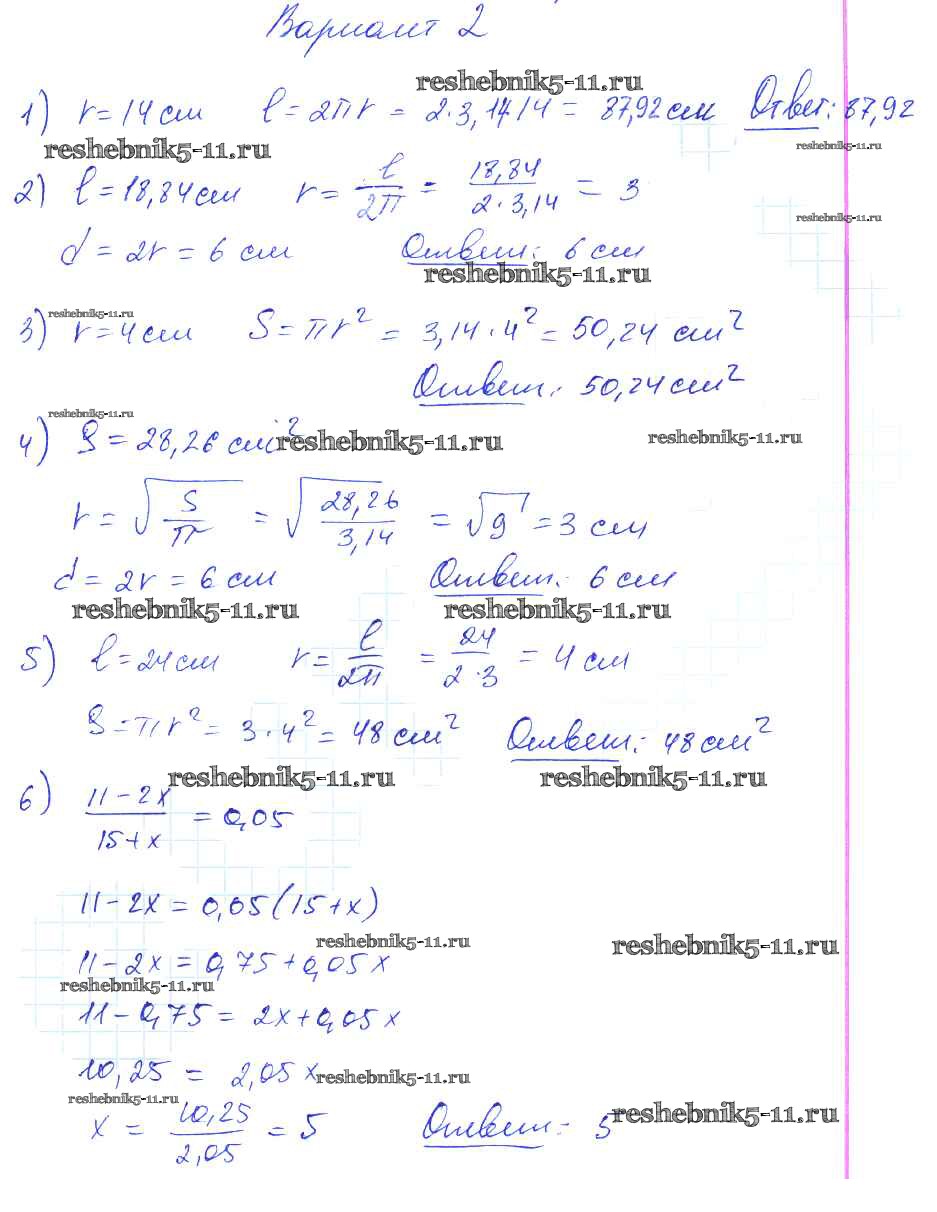 Вариант 2
reshebnik5-11.ru
1) r = 14 см l = 2πr = 2·3,14·14 = 87,92 см Ответ: 87,92
reshebnik5-11.ru reshebnik5-11.ru
2) l = 18,84 см r = l/2π = 18,84/2·3,14 = 3
reshebnik5-11.ru
d = 2r = 6 см Ответ: 6 см
reshebnik5-11.ru
reshebnik5-11.ru
3) r = 4 см S = πr² = 3,14·4² = 50,24 см²
Ответ: 50,24 см²
reshebnik5-11.ru
4) S = 28,26 см² reshebnik5-11.ru reshebnik5-11.ru
r = √S/π = √28,26/3,14 = √9 = 3 см
d = 2r = 6 см Ответ: 6 см
reshebnik5-11.ru reshebnik5-11.ru
5) l = 24 см r = l/2π = 24/2·3 = 4 см
S = πr² = 3·4² = 48 см² Ответ: 48 см²
reshebnik5-11.ru reshebnik5-11.ru
6) 11 - 2x/15 + x = 0,05
11 - 2x = 0,05(15 + x)
reshebnik5-11.ru reshebnik5-11.ru
11 - 2x = 0,75 + 0,05x
reshebnik5-11.ru
11 - 0,75 = 2x + 0,05x
10,25 = 2,05x reshebnik5-11.ru
reshebnik5-11.ru
x = 10,25/2,05 = 5 Ответ: 5 reshebnik5-11.ru